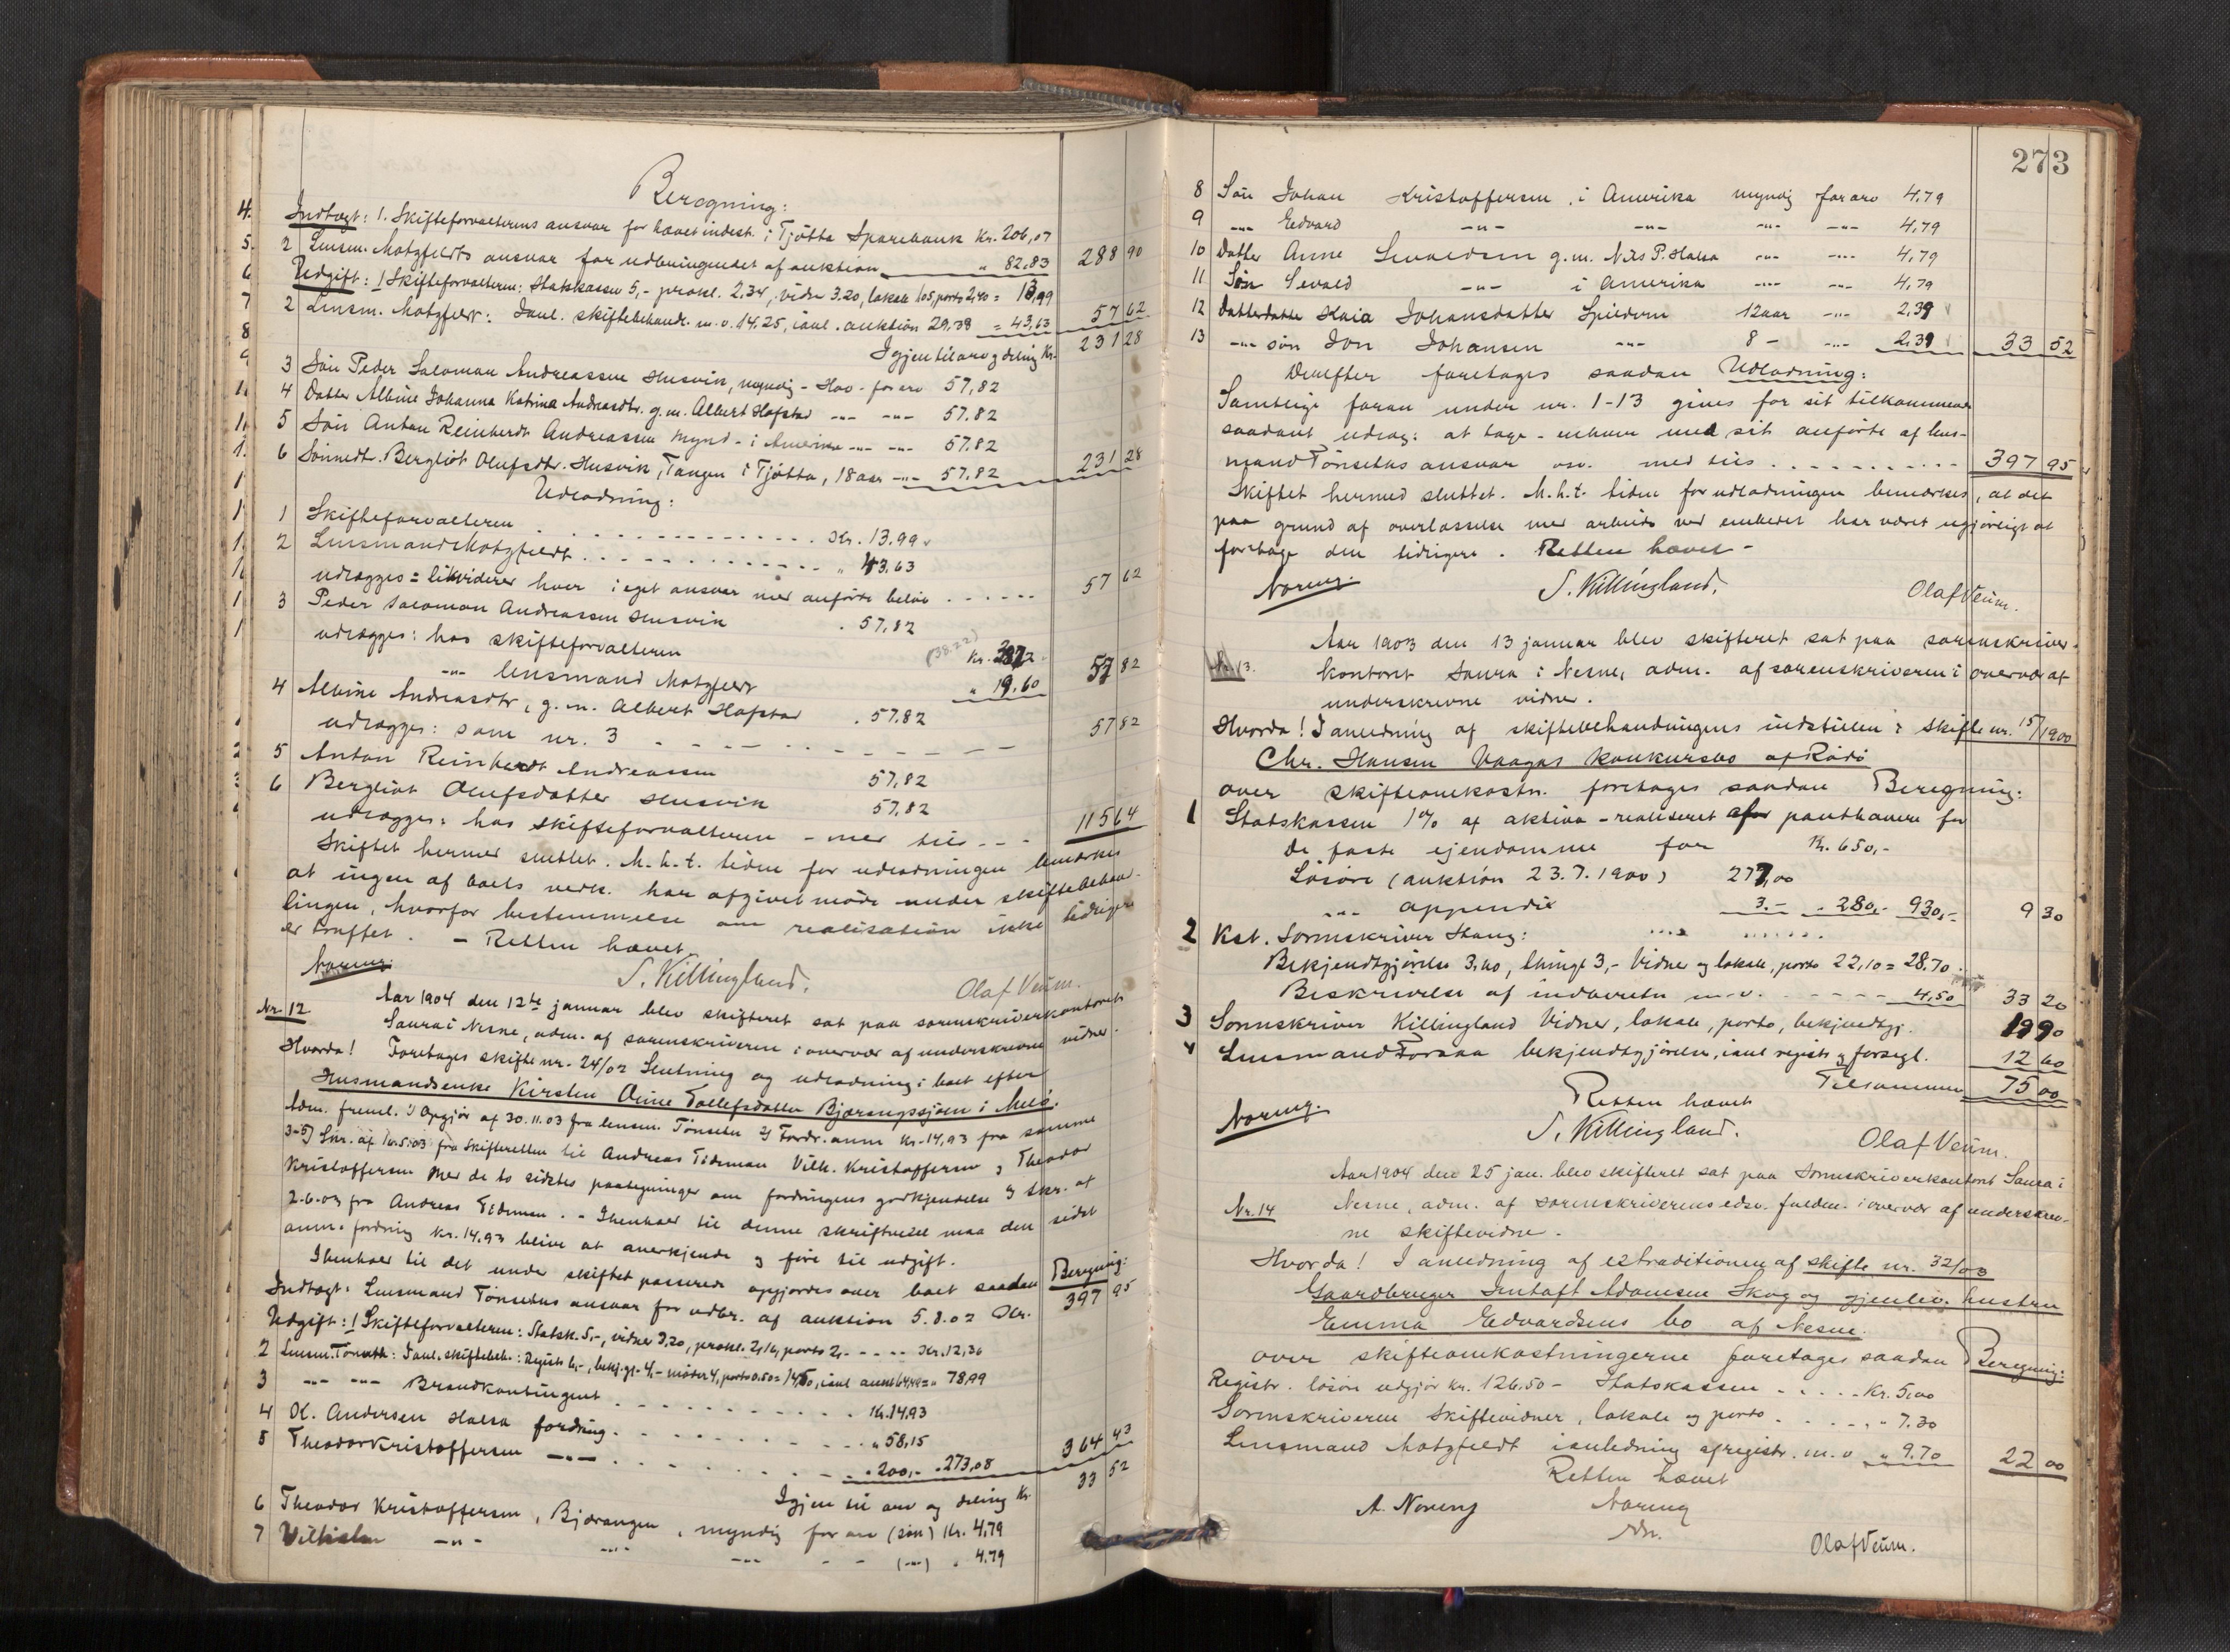 Beregning:
Indtægt: 1. Skifteforvalterens ansvar for hævet indest. i Tjötta Sparebank Kr. 206,07
2 Lensm. Motzfeldts ansvar for udbringendet af auktion " 82,83 288 90
Udgift: 1 Skifteforvalteren: Statskassen 5,- protok. 2.34, vidn 3.20, lokale 1.05, porto 2,40 = 13,99
2 Lensm. Motzfeldt: Ianl. skiftebehandl. m.v. 14.25, ianl. auktion 29.38 = 43,63 57 62
Igjen til arv og deling Kr. 231 28
3 Sön Peder Salomon Andreassen Husvik, myndig - Hav - for arv 57,82
4 Datter Albine Johanna Katrina Andreasdtr. g.m. Albert Hofstad -"- -"- 57,82
5 Sön Anton Reinherdt Andreassen mynd - i Amerika -"- -"- 57,82
6 Sönnedtr. Bergliot Olufsdtr. Husvik, Tangen i Tjötta, 18 aar -"- 57,82 231 28
Udlodning:
1 Skifteforvalteren Kr. 13.99
2 Lensmand Motzfeldt " 43.63
udlægges = likviderer hver i eget ansvar med anförte belöb 57 62
3 Peder Salomon Andreassen Husvik . 57,82
udlægges: hos skifteforvalteren (38.22) Kr.
-"- lensmand Motzfeldt " 19,60 57 82
4 Albine Andreasdtr, g.m. Albert Hofstad . 57.82
udlægges: som nr. 3 57 82
5 Anton Reinherdt Andreassen 57,82
6 Bergliot Olufsdatter Husvik 57,82
udlægges: hos skifteforvalteren - med tils 115 64
Skiftet hermed sluttet. M.h.t. tiden for udlodningen bemærkes
at ingen af boets vedk. har afgivet möde under skiftebehand-
lingen, hvorfor bestemmelse om realisation ikke tidligere
er truffet. - Retten hævet
Noreng. S. Killingland. Olaf Veum.
Nr. 12 Aar 1904 den 12te januar blev skifteret sat paa sorenskriverkontoret
Saura i Nesne, adm. af sorenskriveren i overvær af underskrevne vidner.
Hvorda! Foretages skifte nr. 24/02 Slutning og udlodning i boet efter
Husmandsenke Kirsten Oline Tollefsdatter Bjærangssjöen i Melö.
Adm. freml. 1) Opgjör af 30.11.03 fra lensm. Tönseth 2) Fordr. anm Kr. 14,93 fra samme
3-5) Skr. af fra Skifteretten til Andreas Tideman Vilh. Kristoffersen og Theodor
Kristoffersen med de to sidstes paategninger om fordringens godkjendelse 6) Skr. af
2.6.03 fra Andreas Tideman. - Ihenhold til denne skriftvexel maa den sidst
anm. fordring Kr. 14.93 blive at anerkjende og före til udgift.
Ihenhold til det under skiftet passerede opgjordes over boet saadan Beregning:
Indtægt: Lensmand Tönseths ansvar for udbr. af auktion 5.8.02 Kr. 397 95
Udgift: 1 Skifteforvalteren: Statsk. 5,-, vidner 3,20, protok. 2,16, porto 2,- Kr. 12,36
2 Lensm. Tönseth: Ianl. skiftebeh.: Registr 6,-, bekj.gj. 4,- möter 4, porto 0.50 = 14,50, ianl aukt 64,49 = " 78,99
3 -"- -"- Brandkontingent Kr. 14,93
4 K. Andersen Halsa fordring " 58,15
5 Theodor Kristoffersen -"- " 200,- " 273,08 364 43
Igjen til arv og deling Kr 33 52
6 Theodor Kristoffersen, Bjærangen, myndig for arv (sön) Kr. 4,79
7 Vilhelm -"- -"- -"- - - (-"-) " 4.79
273
8 Sön Johan Kristoffersen, i Amerika myndig for arv 4,79
9 -"- Edvard -"- -"- -"- -"- 4,79
10 Datter Anne Sevaldsen g.m. Nils P. Halsa -"- -"- 4,79
11 Sön Sevald -"- i Amerika -"- -"- 4,79
12 Datterdatter Kaia Johansdatter Spildern 12 aar -"- 2,39
13 -"- sön Jon Johansen -"- 8 - -"- 2,39 33 52
Derefter foretages saadan Udlodning:
Samtlige foran under nr. 1-13 gives for sit tilkommende
saadant udlæg: at tage - enhver med sit anförte af lens-
mand Tönseths ansvar osv. med tils 397 95
Skiftet hermed sluttet. M.h.t. tiden for udlodningen bemærkes, at det
paa grund af overlæsselse med arbeide ved embedet har været ugjörligt at
foretage den tidligere. Retten hævet -
Noreng. S. Killingland. Olaf Veum.
Aar 1903 den 13 januar blev skifteret sat paa sorenskriver-
Nr 13. kontoret Saura i Nesne, adm. af sorenskriveren i overvær af
underskrevne vidner.
Hvorda! I anledning af skiftebehandlingens indstillen i skifte nr. 15/1900
Chr. Hansen Vaagas konkursbo af Rödö
over skifteomkostn. foretages saadan Beregning:
1 Statskassen 1% af aktiva - realiseret af panthavere for
de faste ejendomme for Kr. 650,-
Lösöre (auktion 23.7.1900) 277,00
-"- appendix 3.- . 280,- 930,- 9 30
2 Kst. Sorenskriver Haug:
Bekjendtgjörelse 3,60, thingl 3,- Vidner og lokale, porto 22,10 = 28.70
Beskrivelse af indberetn m.v. 4,50 33 20
3 Sorenskriver Killingland Vidner, lokale, porto, bekjendtgj. 19 90
4 Lensmand Forsaa bekjendtgjörelse, ianl registr og forsegl. 12 60
Tilsammen 75 00
Retten hævet
Noreng. S. Killingland. Olaf Veum.
Aar 1904 den 25 jan. blev skifteret sat paa Sorenskriverkontoret Saura i
Nr. 14 Nesne, adm. af sorenskriverens edsv. fuldm. i overvær af underskrev-
ne skiftevidne.
Hvorda! I anledning af extraditionen af skifte nr. 32/03
Gaardbruger Adamsen Skog og gjenlev. hustru
Emma Edvardsens bo af Nesne.
over skifteomkostningerne foretages saadan Beregning:
Registr. lösöre udgjör kr. 126.50 - Statskassen Kr. 5,00
Sorenskriveren Skiftevidner, lokale og porto " 7.30
Lensmand Motzfeldt ianledning afregistr. m.v " 9.70 22 00
Retten hævet
A. Noreng Noreng
Olaf Veum.